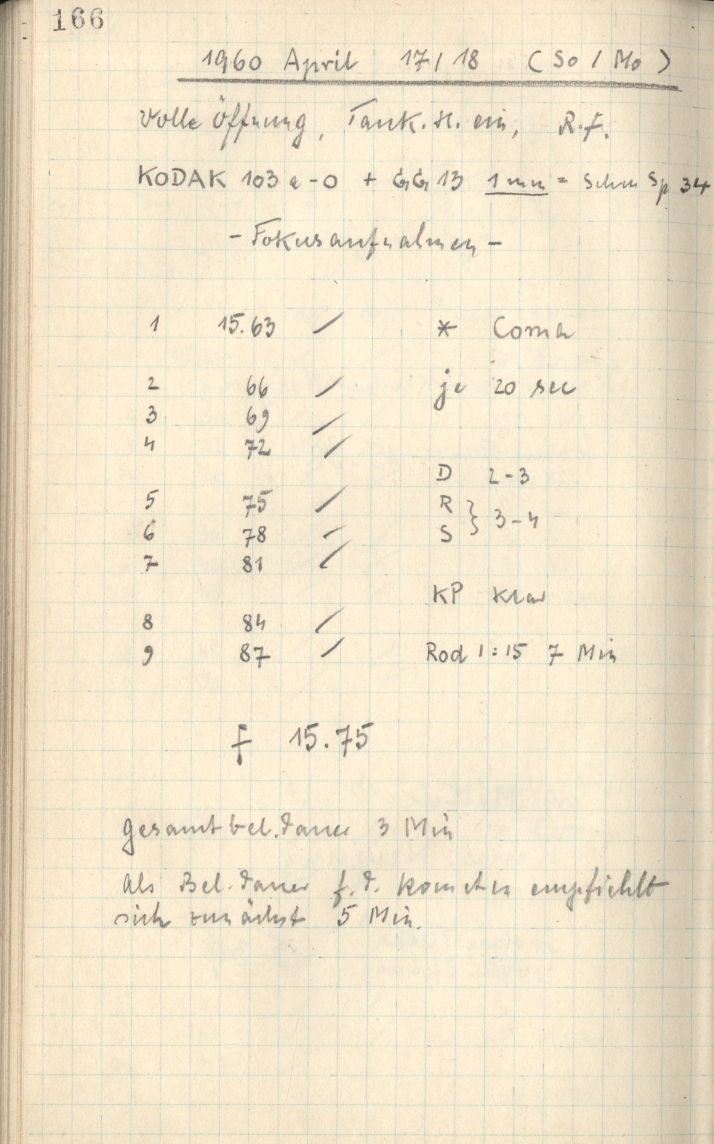 166
1960 April 17/18 (So/Mo)
Volle Öffnung, Tauk.H. ein, R.F.
KODAK 103a-O + GG13 1mm = Schm Sp 34
- Fokusaufnahmen -
1 15.63 / * Coma
2 66 / je 20 sec
3 69 /
4 72 /
D 2-3
5 75 / R } 3-4
6 78 / S
7 81 /
KP klar
8 84 /
9 87 / Rod 1:15 7 Min
f 15.75
Gesamtbel.dauer 3 Min
Als Bel.dauer f.d. Kometen empfiehlt
sich zunächst 5 Min.